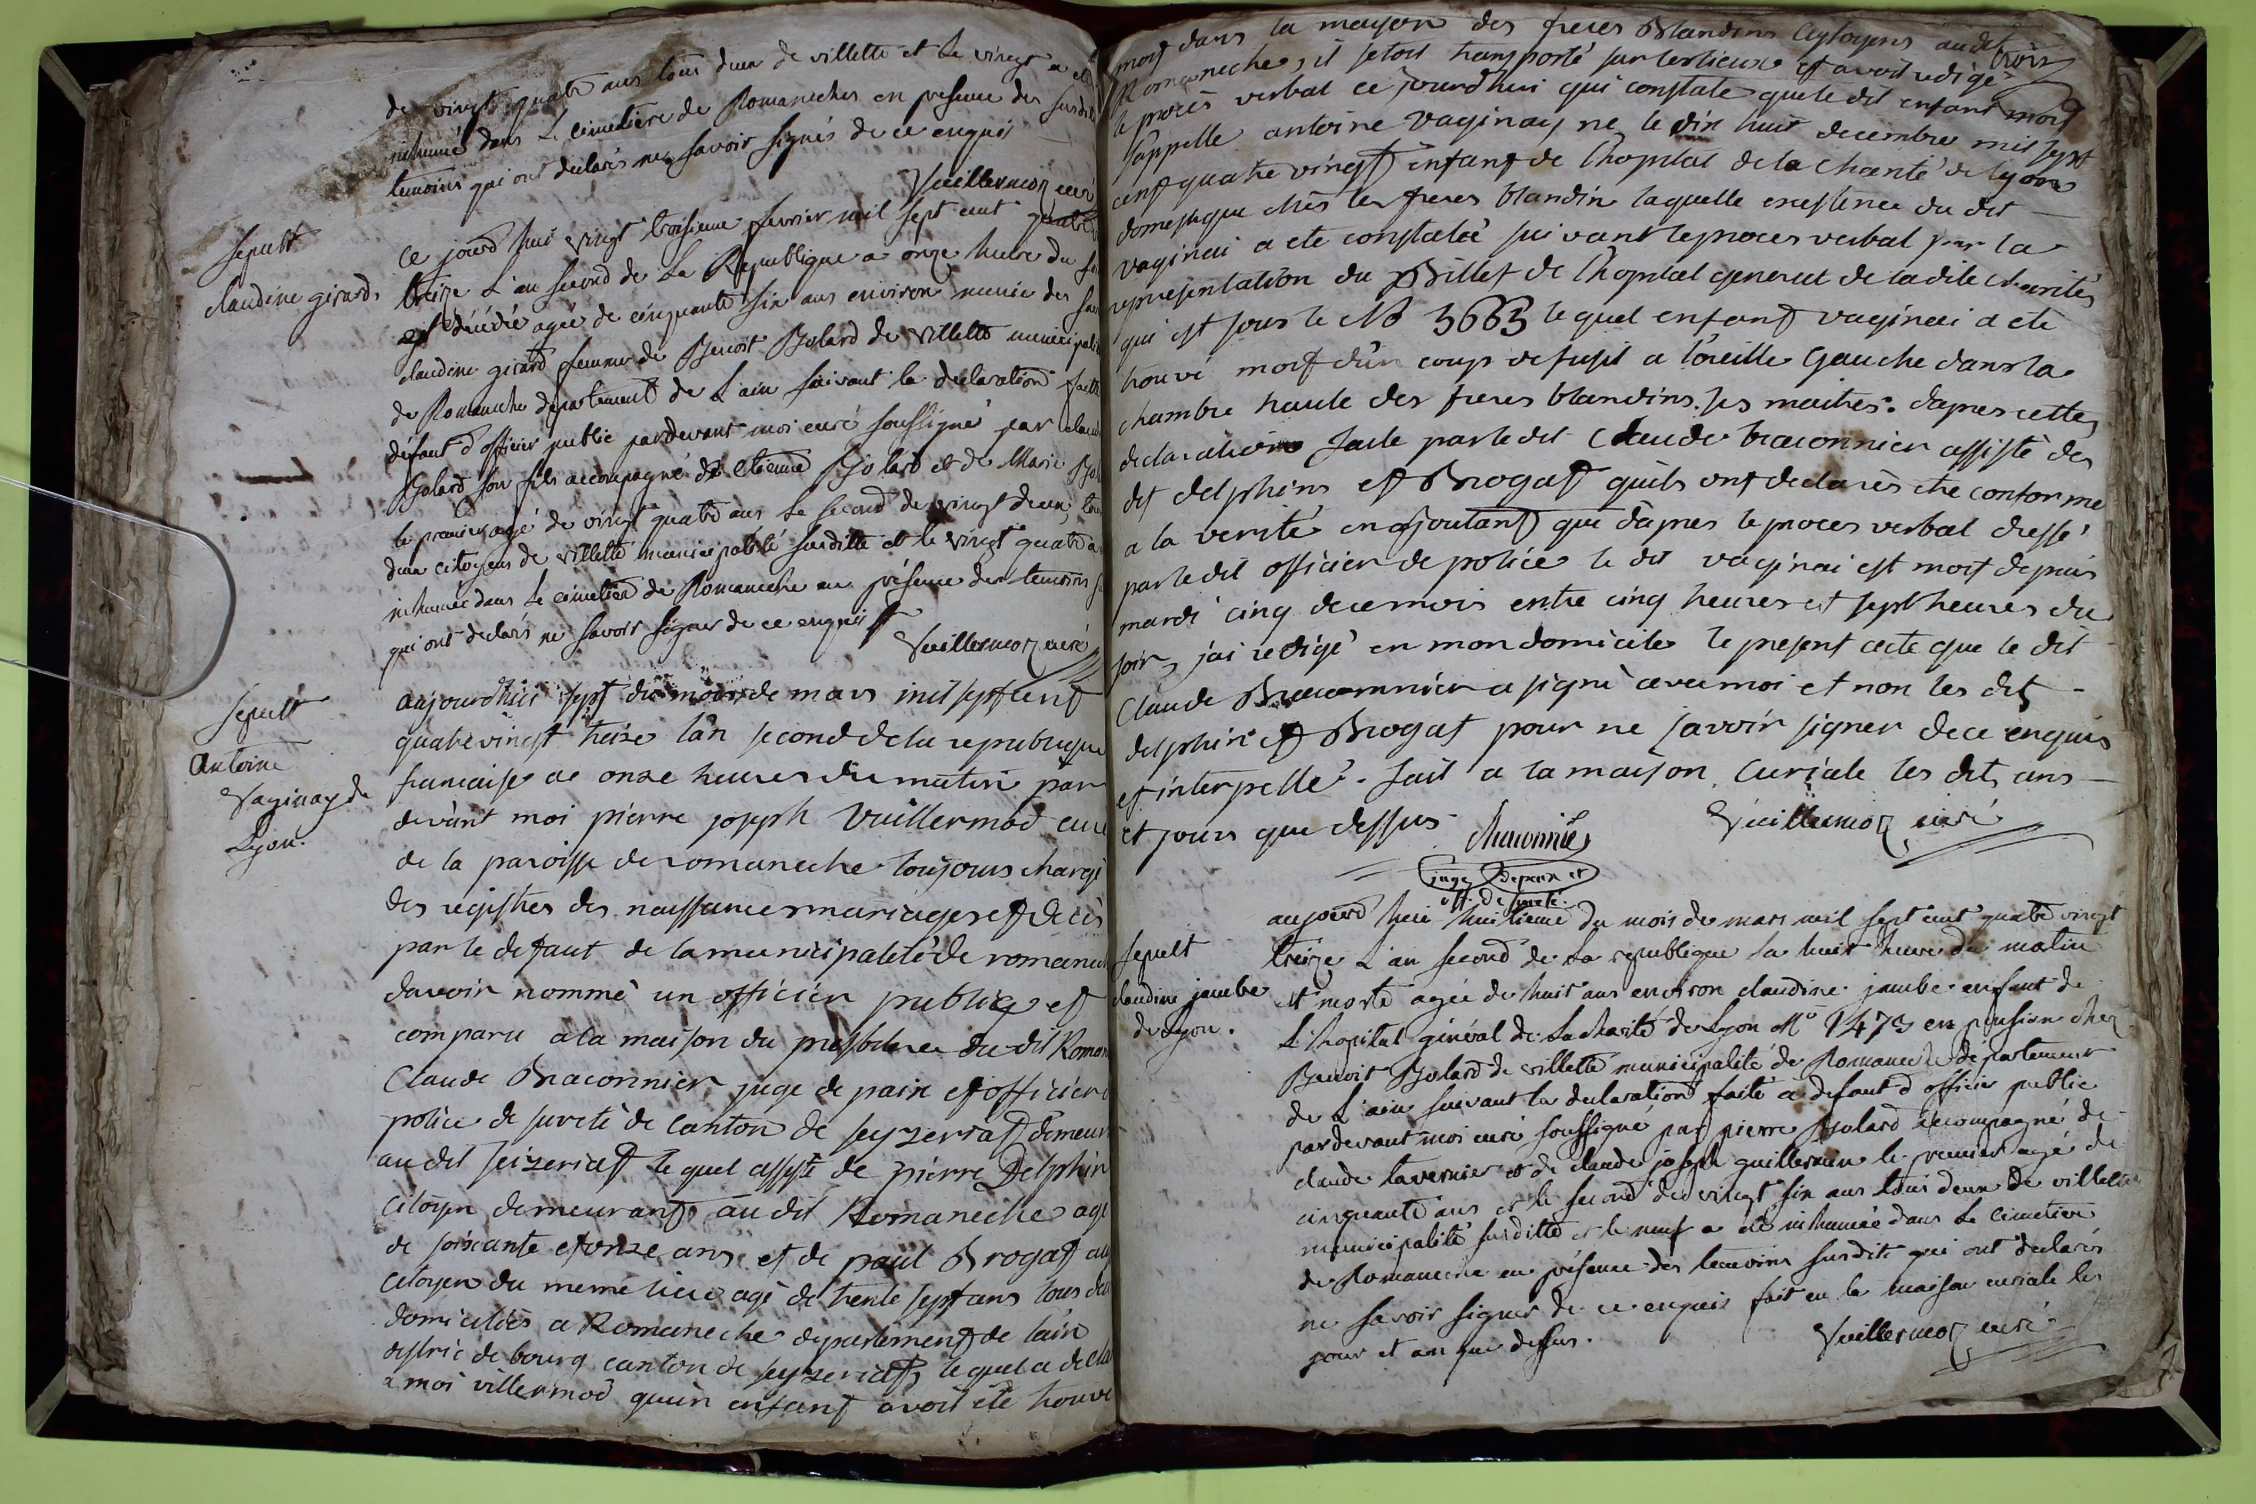 de vingt quatre ans tous deux de villette et Le vingt a été
inhumé dans Le cimetiere de Romaneches en presence des susdits
temoins qui ont declarés ne savoir signés de ce enquis
Vuillermoz curé
Sepult
claudine girard
Ce jourd'hui vingt troisieme fevrier mil sept cent quatre
treize L'an second de La Republique a onze heure du
est décédée agée de cinquante six ans environ munie des
claudine girard femme de Benoit Bolard de villette municipalité
de Romaneche departement de L'ain suivant la declaration faitte
défaut d'officier public pardevant moi curé soussigné par
Bolard son fils accompagné de Etienne Bolard et de Marie
le premier agé de vingt quatre ans Le second de vingt deux
deux citoyens de villette municipalité susditte et le vingt quatre a
inhumée dans Le cimetiere de Romaneche en présence des temoins
qui ont declarés ne savoir signer de ce enquis
Vuillermoz curé
Sepult
Antoine
Vaginay de
Lyon.
aujourdhui sept du mois de mars mil sept cent
quatrevingt treize l'an second de la republique
francaise a onze heures du matin par
devant moi pierre joseph Vuillermod curé
de la paroisse de romaneche toujours chargé
des registres des naissances mariages et décès
par le defaut de la municipalité de romaneche
davoir nommé un officier public est
comparu a la maison du presbitere du dit Roman
Claude Braconnier juge de paix et officier
police de sureté de Canton de seyzeriat demeur
au dit seizeriat le quel assisté de pierre Delphin
Citoyen demeurant au dit Romanèche agé
de soixante et onze ans et de paul Brogat
Citoyen du meme lieu agé de trente sept ans tous deux
domiciliés a Romaneche departement de lain
distric de bourg canton de seyzeriat, le quel a decla
a moi villermod qu'un enfant avoit été trouvé
trois
mort dans la mayson des freres Blandins Cytoyens audit
Romaneche, il setoit transporté sur les lieux et avoit redigé
le procès verbal ce jourdhui qui constate que le dit enfant mort
sappelle antoine vaginay né le dix huit decembre mil sept
cent quatre vingt enfant de lhopital de la charité de lyon
domestique chès les freres blandin laquelle existence du dit
vaginai a ete constatée suivant le proces verbal par la
representation du Billet de lhopital general de la dite charité
qui est sous le N° 3663 le quel enfant vaginai a ete
trouvé mort d'un coup de fusil a l'oreille Gauche dans la
chambre haute des freres blandins ses maitres. dapres cette
declaration faite par le dit Claude braconnier assisté des
dit delphins et Brogat quils ont declarès etre conforme
a la verité en ajoutant que dapres le proces verbal dressé
par le dit officier de police le dit vaginai est mort depuis
mardi cinq de ce mois entre cinq heures et sept heures du
soir, jai redigé en mon domicile le present acte que le dit
Claude Braconnier a signé avec moi et non les dit
delphin et Brogat pour ne savoir signer de ce enquis
et interpellé. fait a la maison Curiale les dit ans
et jours que dessus
Braconnier
Vuillermoz curé
juge depaix et
off. de sureté.
Sepult
claudine jambe
de Lyon.
aujourd'hui huitieme du mois de mars mil sept cent quatre vingt
treize L'an second de La republique La huit heure du matin
est morte agée de huit ans environ claudine jambe enfant de
L'hopital général de La charité de Lyon N° 1473 en pension chez
Benoit Bolard de villette municipalité de Romaneche departement
de L'ain suivant la declaration faite a defaut d'officier public
pardevant moi curé soussigné par pierre Bolard accompagné de
claude tavernier et de claude joseph guillermin le premier agé de
cinquante ans et le second de vingt six ans tous deux de villette
municipalité susditte et le neuf a été inhumée dans Le cimetiere
de Romaneche en présence des temoins susdits qui ont declarés
ne savoir signer de ce enquis fait en la maison curiale les
jour et an que dessus.
Vuillermoz curé